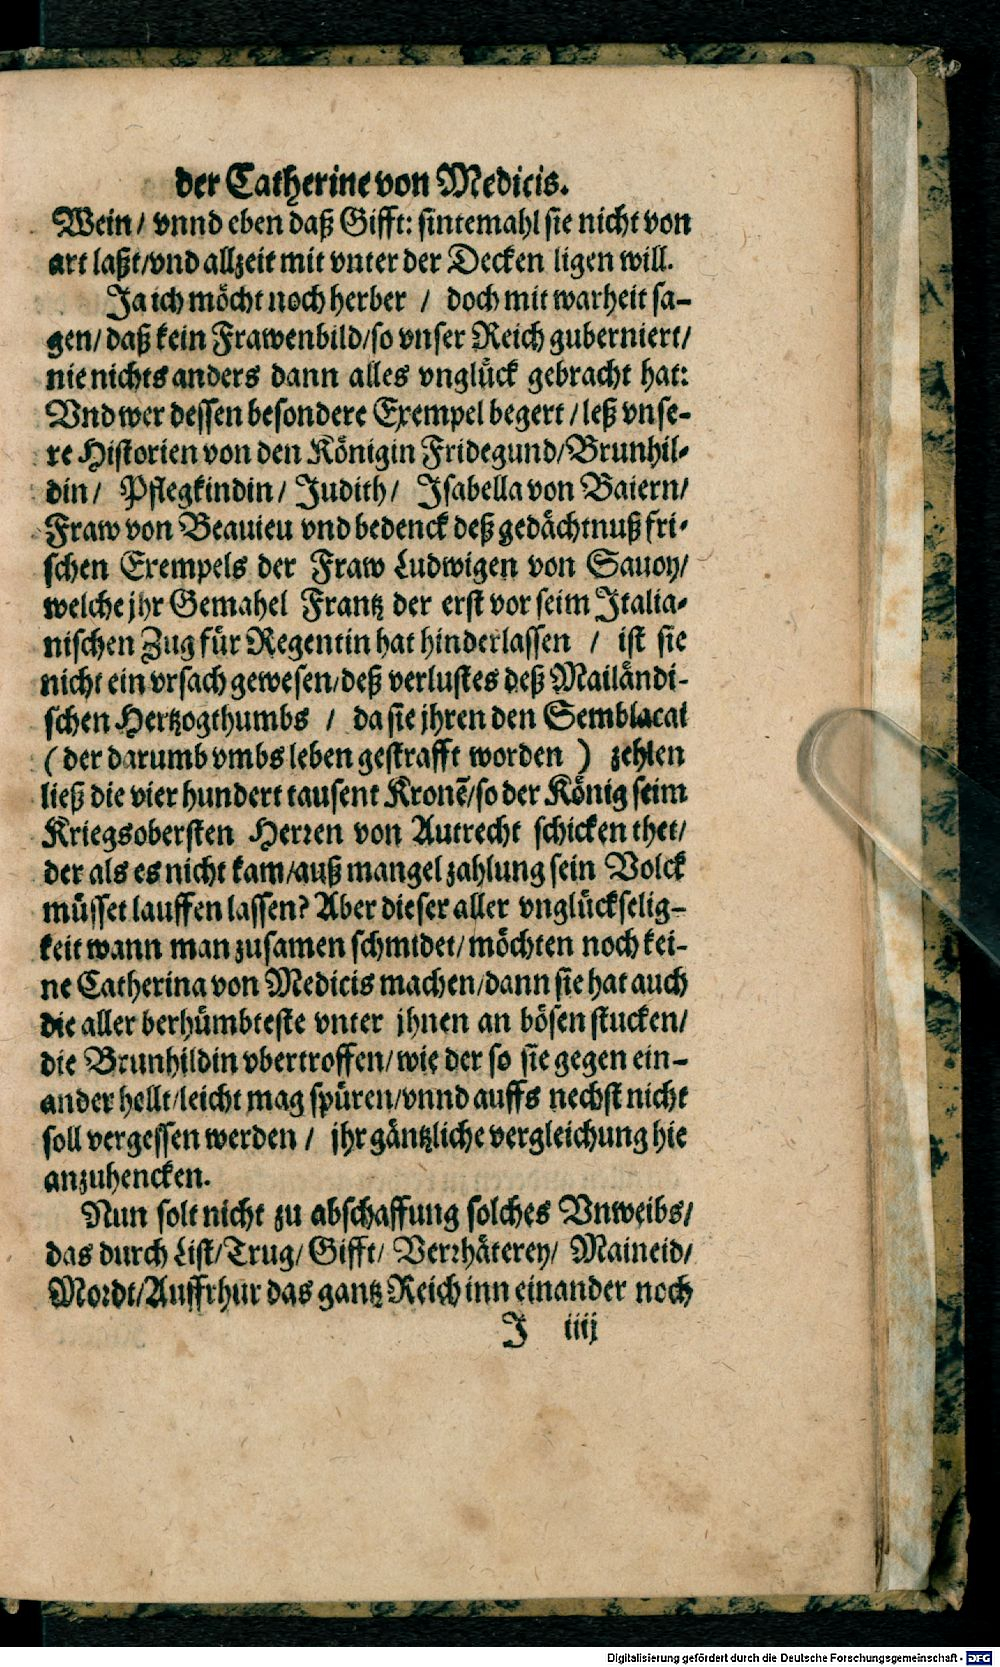 der Catherine von Medicis.
Wein/ vnnd eben daß Gifft: sintemahl sie nicht von
art laßt/vnd allzeit mit vnter der Decken ligen will.
Ja ich möcht noch herber / doch mit warheit sa-
gen/ daß kein Frawenbild/so vnser Reich guberniert/
nie nichts anders dann alles vnglück gebracht hat:
Vnd wer dessen besondere Exempel begert /leß vnse-
re Historien von den Königin Fridegund/Brunhil-
din/ Pflegkindin/ Judith/ Isabella von Baiern/
Fraw von Beauieu vnd bedenck deß gedächtnuß fri-
schen Exempels der Fraw Ludwigen von Sauoy/
welche jhr Gemahel Frantz der erst vor seim Italia-
nischen Zug für Regentin hat hinderlassen / ist sie
nicht ein vrsach gewesen/deß verlustes deß Mailändi-
schen Hertzogthumbs / da sie jhren den Semblacai
(der darumb vmbs leben gestrafft worden ) zehlen
ließ die vier hundert tausent Kronē/so der König seim
Kriegsobersten Herren von Autrecht schicken thet/
der als es nicht kam/auß mangel zahlung sein Volck
müsset lauffen lassen? Aber dieser aller vnglückselig-
keit wann man zusamen schmidet/ möchten noch kei-
ne Catherina von Medicis machen/dann sie hat auch
die aller berhümbteste vnter jhnen an bösen stucken/
die Brunhildin vbertroffen/wie der so sie gegen ein-
ander hellt/leicht mag spüren/vnnd auffs nechst nicht
soll vergessen werden / jhr gäntzliche vergleichung hie
anzuhencken.
Nun solt nicht zu abschaffung solches Vnweibs/
das durch List/Trug/ Gifft/ Verrhäterey/ Maineid/
Mordt/Auffrhur das gantz Reich inn einander noch
J iiij
Digitalisierung gefördert durch die Deutsche Forschungsgemeinschaft - DFG